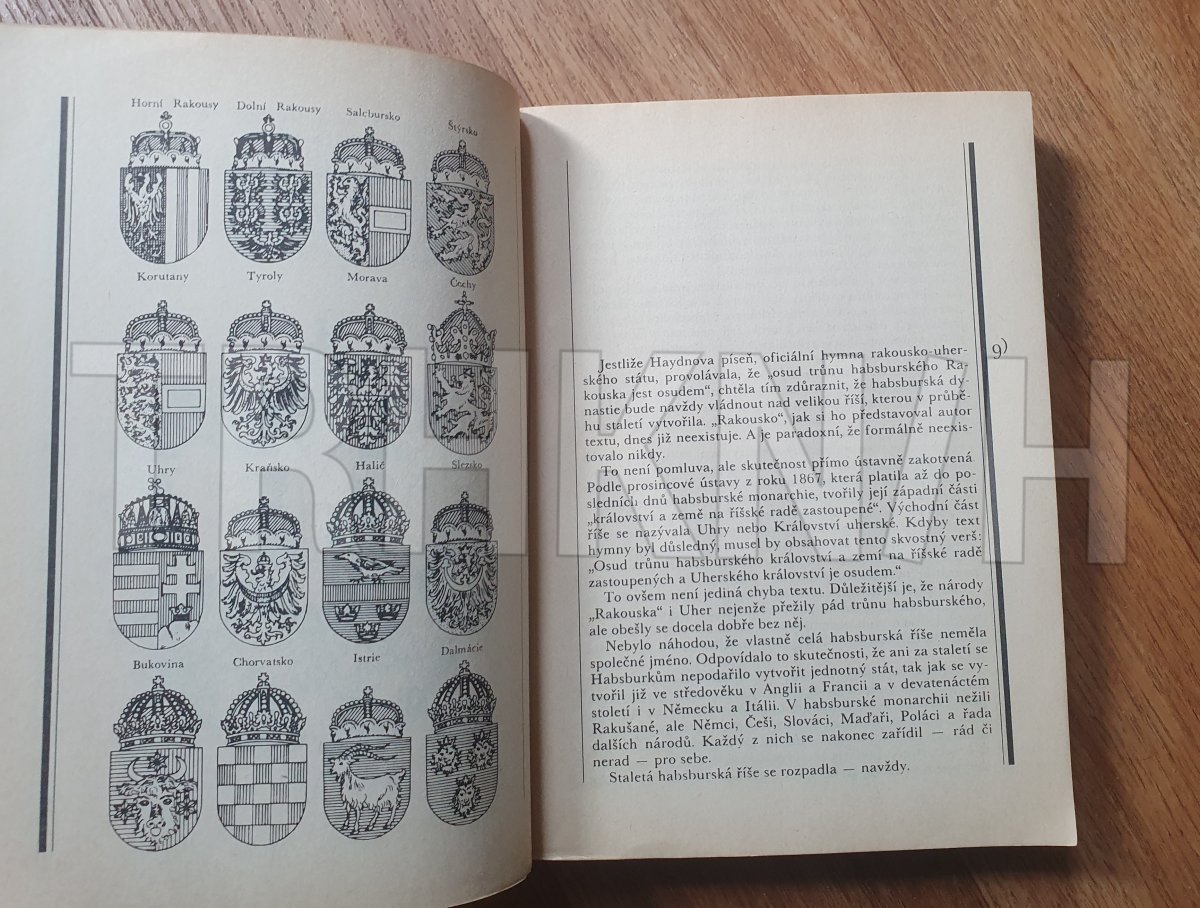 Horní Rakousy Dolní Rakousy Salcbursko Štýrsko
Korutany Tyroly Morava Čechy
Uhry Kraňsko Halič Slezsko
Bukovina Chorvatsko Istrie Dalmácie
9)
Jestliže Haydnova píseň, oficiální hymna rakousko-uher-
ského státu, provolávala, že „osud trůnu habsburského Ra-
kouska jest osudem“, chtěla tím zdůraznit, že habsburská dy-
nastie bude navždy vládnout nad velikou říší, kterou v průbě-
hu staletí vytvořila. „Rakousko“, jak si ho představoval autor
textu, dnes již neexistuje. A je paradoxní, že formálně neexis-
tovalo nikdy.
To není pomluva, ale skutečnost přímo ústavně zakotvená.
Podle prosincové ústavy z roku 1867, která platila až do po-
sledních dnů habsburské monarchie, tvořily její západní části
„království a země na říšské radě zastoupené“. Východní část
říše se nazývala Uhry nebo Království uherské. Kdyby text
hymny byl důsledný, musel by obsahovat tento skvostný verš:
„Osud trůnu habsburského království a zemí na říšské radě
zastoupených a Uherského království je osudem.“
To ovšem není jediná chyba textu. Důležitější je, že národy
„Rakouska“ i Uher nejenže přežily pád trůnu habsburského,
ale obešly se docela dobře bez něj.
Nebylo náhodou, že vlastně celá habsburská říše neměla
společné jméno. Odpovídalo to skutečnosti, že ani za staletí se
Habsburkům nepodařilo vytvořit jednotný stát, tak jak se vy-
tvořil již ve středověku v Anglii a Francii a v devatenáctém
století i v Německu a Itálii. V habsburské monarchii nežili
Rakušané, ale Němci, Češi, Slováci, Maďaři, Poláci a řada
dalších národů. Každý z nich se nakonec zařídil — rád či
nerad — pro sebe.
Staletá habsburská říše se rozpadla — navždy.